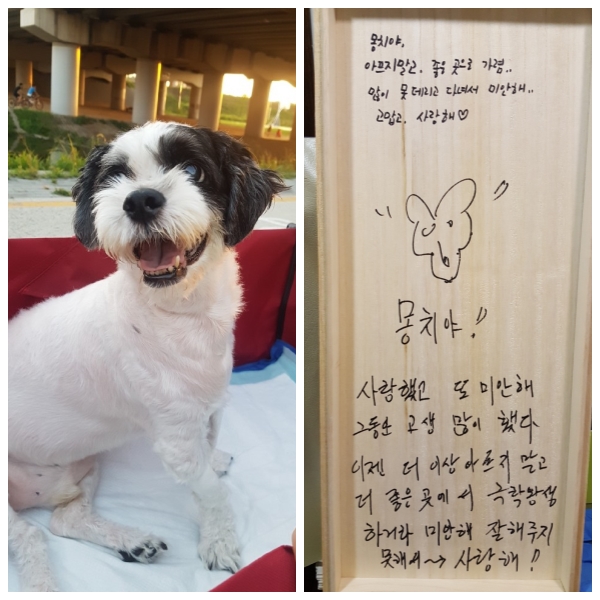 뭉치야,
아프지말고. 좋은 곳으로 가렴..
많이 못 데리고 다녀서 미안해..
고맙고, 사랑해♡
뭉치야!!
사랑했고 또 미안해
그동안 고생 많이 했다.
이젠 더 이상 아프지 말고
더 좋은 곳에서 극락왕생
하거라 미안해 잘해주지
못해서~> 사랑해!!